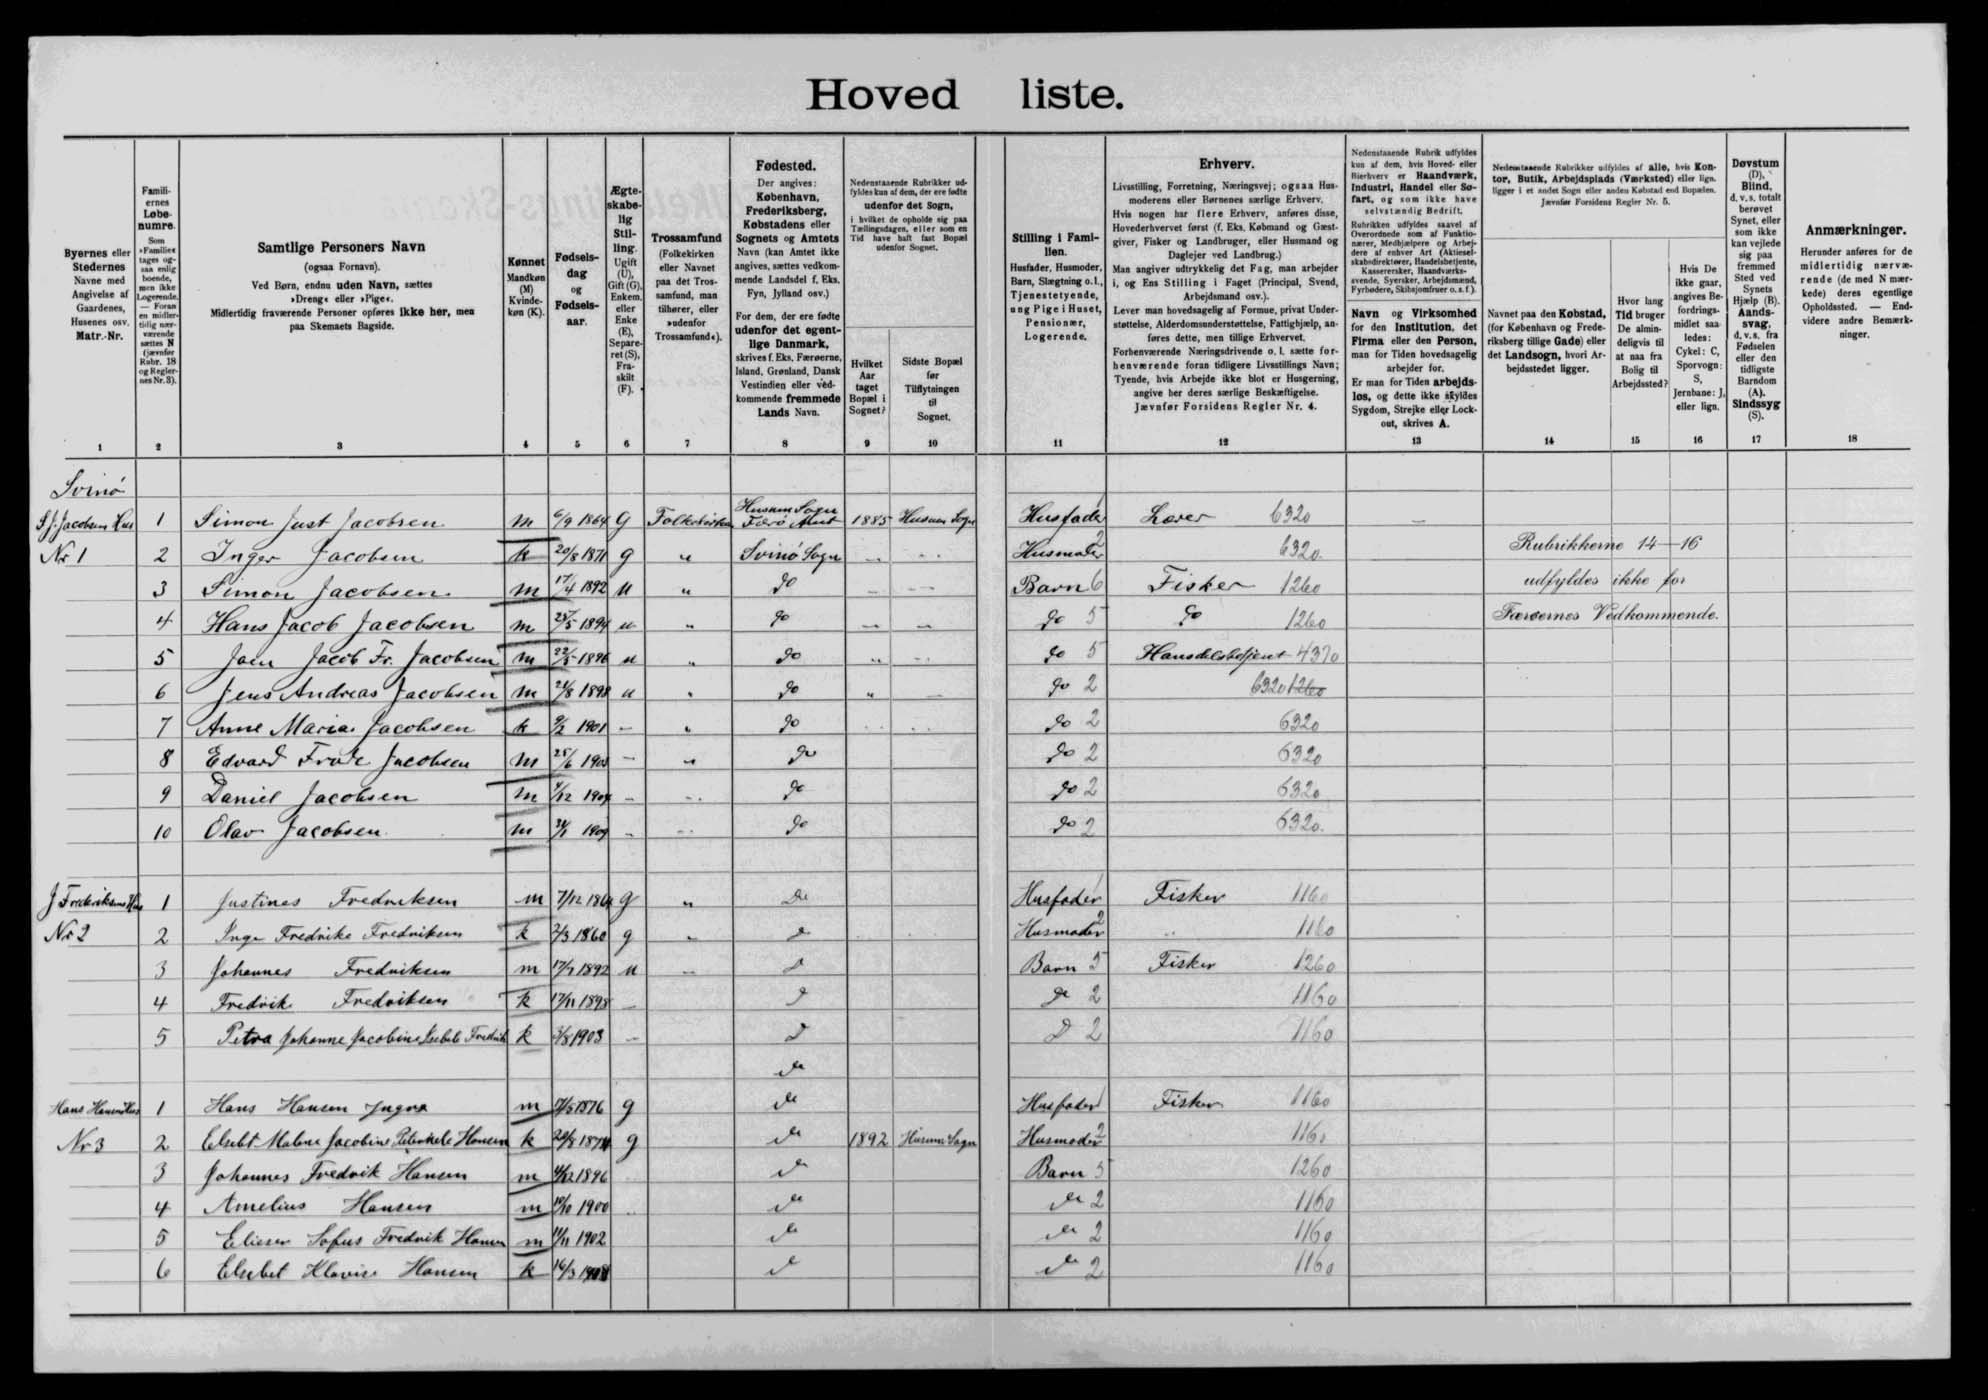 Hoved liste.
Byernes eller Stedernes Navne med Angivelse af Gaardenes, Husenes osv. Matr.-Nr.
Familiernes Løbenumre. Som »Familie« tages ogsaa enlig boende, men ikke Logerende. — Foran en midlertidig nærværende sættes N (jævnfør Rubr. 18 og Reglernes Nr. 3).
Samtlige Personers Navn
(ogsaa Fornavn).
Ved Børn, endnu uden Navn, sættes »Dreng« eller »Pige«.
Midlertidig fraværende Personer opføres ikke her, men paa Skemaets Bagside.
Kønnet Mandkøn (M) Kvindekøn (K).
Fødselsdag og Fødselsaar.
Ægteskabelig Stilling. Ugift (U), Gift (G), Enkem. eller Enke (E), Separeret (S), Fraskilt (F).
Trossamfund (Folkekirken eller Navnet paa det Trossamfund, man tilhører, eller »udenfor Trossamfund«).
Fødested.
Der angives: København, Frederiksberg, Købstadens eller Sognets og Amtets Navn (kan Amtet ikke angives, sættes vedkommende Landsdel f. Eks. Fyn, Jylland osv.)
For dem, der ere fødte udenfor det egentlige Danmark, skrives f. Eks. Færøerne, Island, Grønland, Dansk Vestindien eller vedkommende fremmede Lands Navn.
Nedenstaaende Rubrikker udfyldes kun af dem, der ere fødte udenfor det Sogn, i hvilket de opholde sig paa Tællingsdagen, eller som en Tid have haft fast Bopæl udenfor Sognet.
Hvilket Aar taget Bopæl i Sognet?
Sidste Bopæl før Tilflytningen til Sognet.
Stilling i Familien.
Husfader, Husmoder, Barn, Slægtning o.l., Tjenestetyende, ung Pige i Huset, Pensionær, Logerende.
Erhverv.
Livsstilling, Forretning, Næringsvej; ogsaa Husmoderens eller Børnenes særlige Erhverv.
Hvis nogen har flere Erhverv, anføres disse, Hovederhvervet først (f. Eks. Købmand og Gæstgiver, Fisker og Landbruger, eller Husmand og Daglejer ved Landbrug.)
Man angiver udtrykkelig det Fag, man arbejder i, og Ens Stilling i Faget (Principal, Svend, Arbejdsmand osv.).
Lever man hovedsagelig af Formue, privat Understøttelse, Alderdomsunderstøttelse, Fattighjælp, anføres dette, men tillige Erhvervet.
Forhenværende Næringsdrivende o. l. sætte forhenværende foran tidligere Livsstillings Navn; Tyende, hvis Arbejde ikke blot er Husgerning, angive her deres særlige Beskæftigelse.
Jævnfør Forsidens Regler Nr. 4.
Nedenstaaende Rubrik udfyldes kun af dem, hvis Hoved- eller Bierhverv er Haandværk, Industri, Handel eller Søfart, og som ikke have selvstændig Bedrift.
Rubrikken udfyldes saavel af Overordnede som af Funktionærer, Medhjælpere og Arbejdere af enhver Art (Aktieselskabsdirektører, Handelsbetjente, Kasserersker, Haandværkssvende, Syersker, Arbejdsmænd, Fyrbødere, Skibsjomfruer o. s. f.).
Navn og Virksomhed for den Institution, det Firma eller den Person, man for Tiden hovedsagelig arbejder for.
Er man for Tiden arbejdsløs, og dette ikke skyldes Sygdom, Strejke eller Lockout, skrives A.
Nedenstaaende Rubrikker udfyldes af alle, hvis Kontor, Butik, Arbejdsplads (Værksted) eller lign. ligger i et andet Sogn eller anden Købstad end Bopælen.
Jævnfør Forsidens Regler Nr. 5.
Navnet paa den Købstad, (for København og Frederiksberg tillige Gade) eller det Landsogn, hvori Arbejdsstedet ligger.
Hvor lang Tid bruger De almindeligvis til at naa fra Bolig til Arbejdssted?
Hvis De ikke gaar, angives Befordringsmidlet saaledes: Cykel: C, Sporvogn: S, Jernbane: J, eller lign.
Døvstum (D), Blind, d. v. s. totalt berøvet Synet, eller som ikke kan vejlede sig paa fremmed Sted ved Synets Hjælp (B). Aandssvag, d. v. s. fra Fødselen eller den tidligste Barndom (A). Sindssyg (S).
Anmærkninger.
Herunder anføres for de midlertidig nærværende (de med N mærkede) deres egentlige Opholdssted. — Endvidere andre Bemærkninger.
1 2 3 4 5 6 7 8 9 10 11 12 13 14 15 16 17 18
Svinø
S. J. Jacobsens Hus 1 Simon Just Jacobsen m 6/9 1864 g Folkekirken Husum Sogn Færø Amt 1885 Husum Sogn Husfader 1 Lærer 6320 —
Nr 1 2 Inger Jacobsen k 20/8 1871 g " Svinø Sogn Husmoder 2 6320 Rubrikkerne 14—16
3 Simon Jacobsen m 17/4 1892 u " do Barn 6 Fisker 1260 udfyldes ikke for
4 Hans Jacob Jacobsen m 25/5 1894 u " do do 5 do 1260 Færøernes Vedkommende.
5 Jacob Fr. Jacobsen m 22/5 1896 u " do do 5 Handelsbetjent 4370
6 Jens Andreas Jacobsen m 21/8 1898 u " do do 2 6320 1260
7 Anne Maria Jacobsen k 9/2 1901 — " do do 2 6320
8 Edvard Frode Jacobsen m 25/6 1903 — " do do 2 6320
9 Daniel Jacobsen m 4/12 1904 — do do 2 6320
10 Olav Jacobsen m 1909 — do do 2 6320.
J Frederiksens Hus 1 Justines Fredriksen m 7/12 1864 g " Do Husfader 1 Fisker 1160
Nr 2 2 Inge Fredrike Fredriksen k 2/3 1860 g " Husmoder 2 " 1160
3 Johannes Fredriksen m 17/7 1892 u Barn 5 Fisker 1260
4 Fredrik Fredriksen k 17/11 1898 — do 2 1160
5 Petra Johanne Jacobine Fredrik k 1903 — D 2 1160
do
Hans Hansens Hus 1 Hans Hansen Jngva m 1876 g do Husfader 1 Fisker 1160
Nr 3 2 Elsebt Malene Jacobine Hansen k 20/8 1874 g do 1892 Husum Sogn Husmoder 2 1160
3 Johannes Fredrik Hansen m 4/12 1896 do Barn 5 1260
4 Amelius Hansen m 10/10 1900 do do 2 1160
5 Elieser Sofus Fredrik Hansen m 11/11 1902 do do 2 1160
6 Elsebet Klavise Hansen k 16/3 1908 do do 2 1160